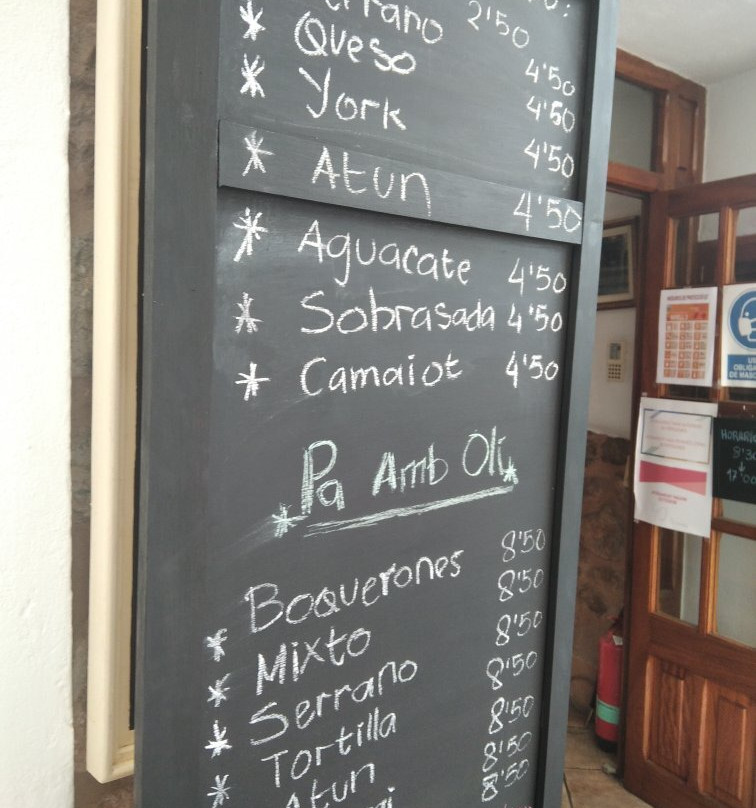 2'50
* Queso 4'50
* York 4'50
* Atun 4'50
4'50
* Aguacate 4'50
* Sobrasada 4'50
* Camaiot 4'50
* Pa Amb Oli *
Boquerones 8'50
* Mixto 8'50
* Serrano 8'50
* Tortilla 8'50
* Atun 8'50
8'50
8'50
HORARIO
9'30
17'00